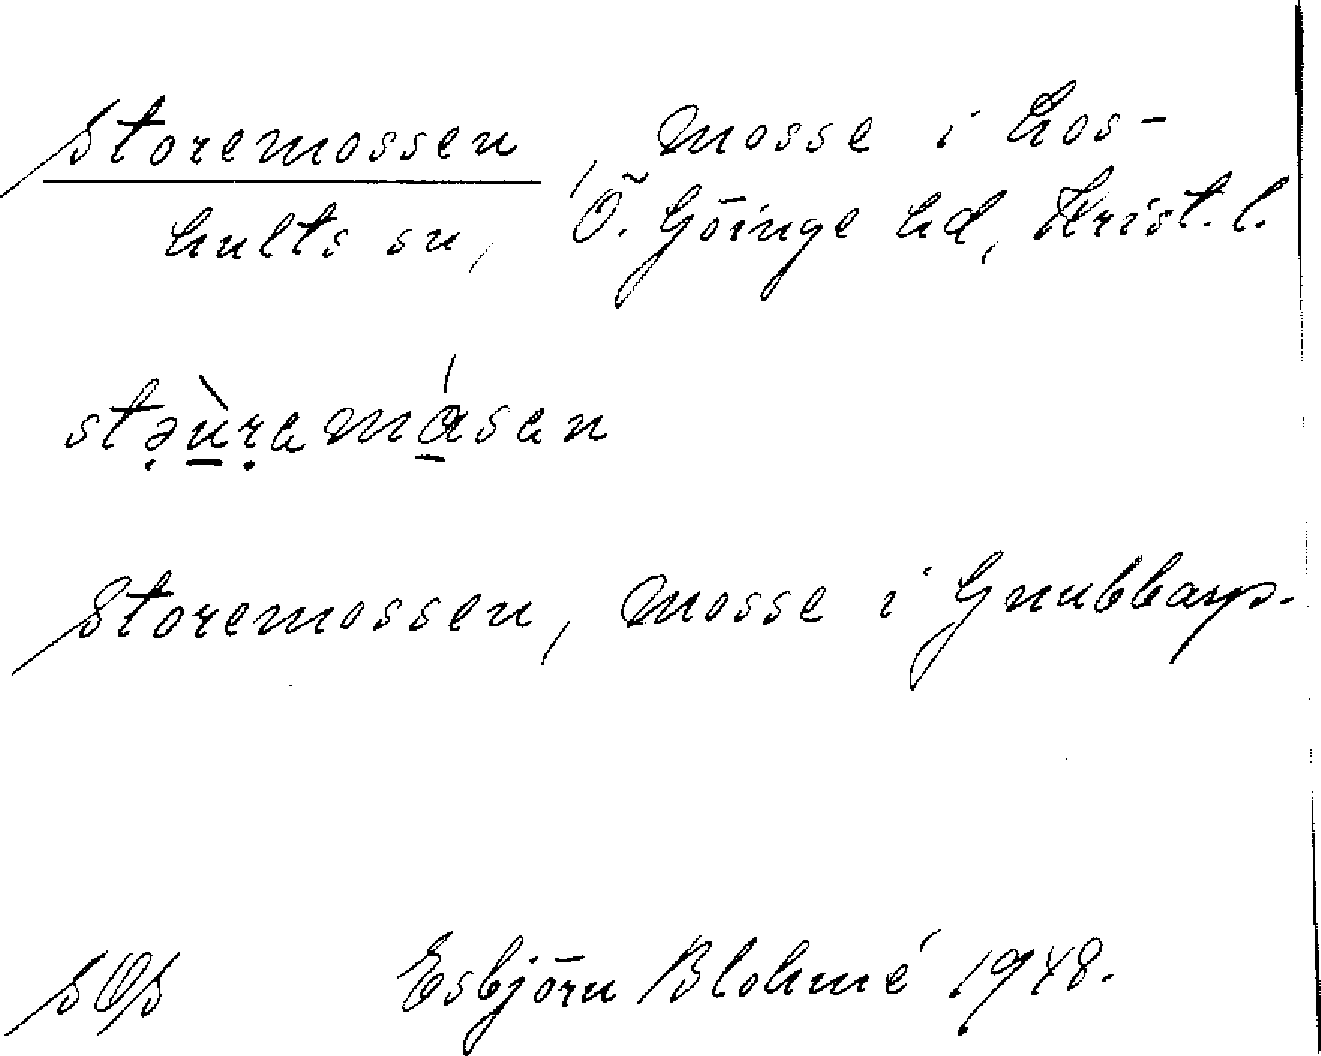 Storemossen, mosse i Los-
hults sn, Ö. Göinge hd, Krist. l.
stə̣ùṛamásan
Storemossen, mosse i Gnubbarp.
SOS Esbjörn Blohmé 1948.